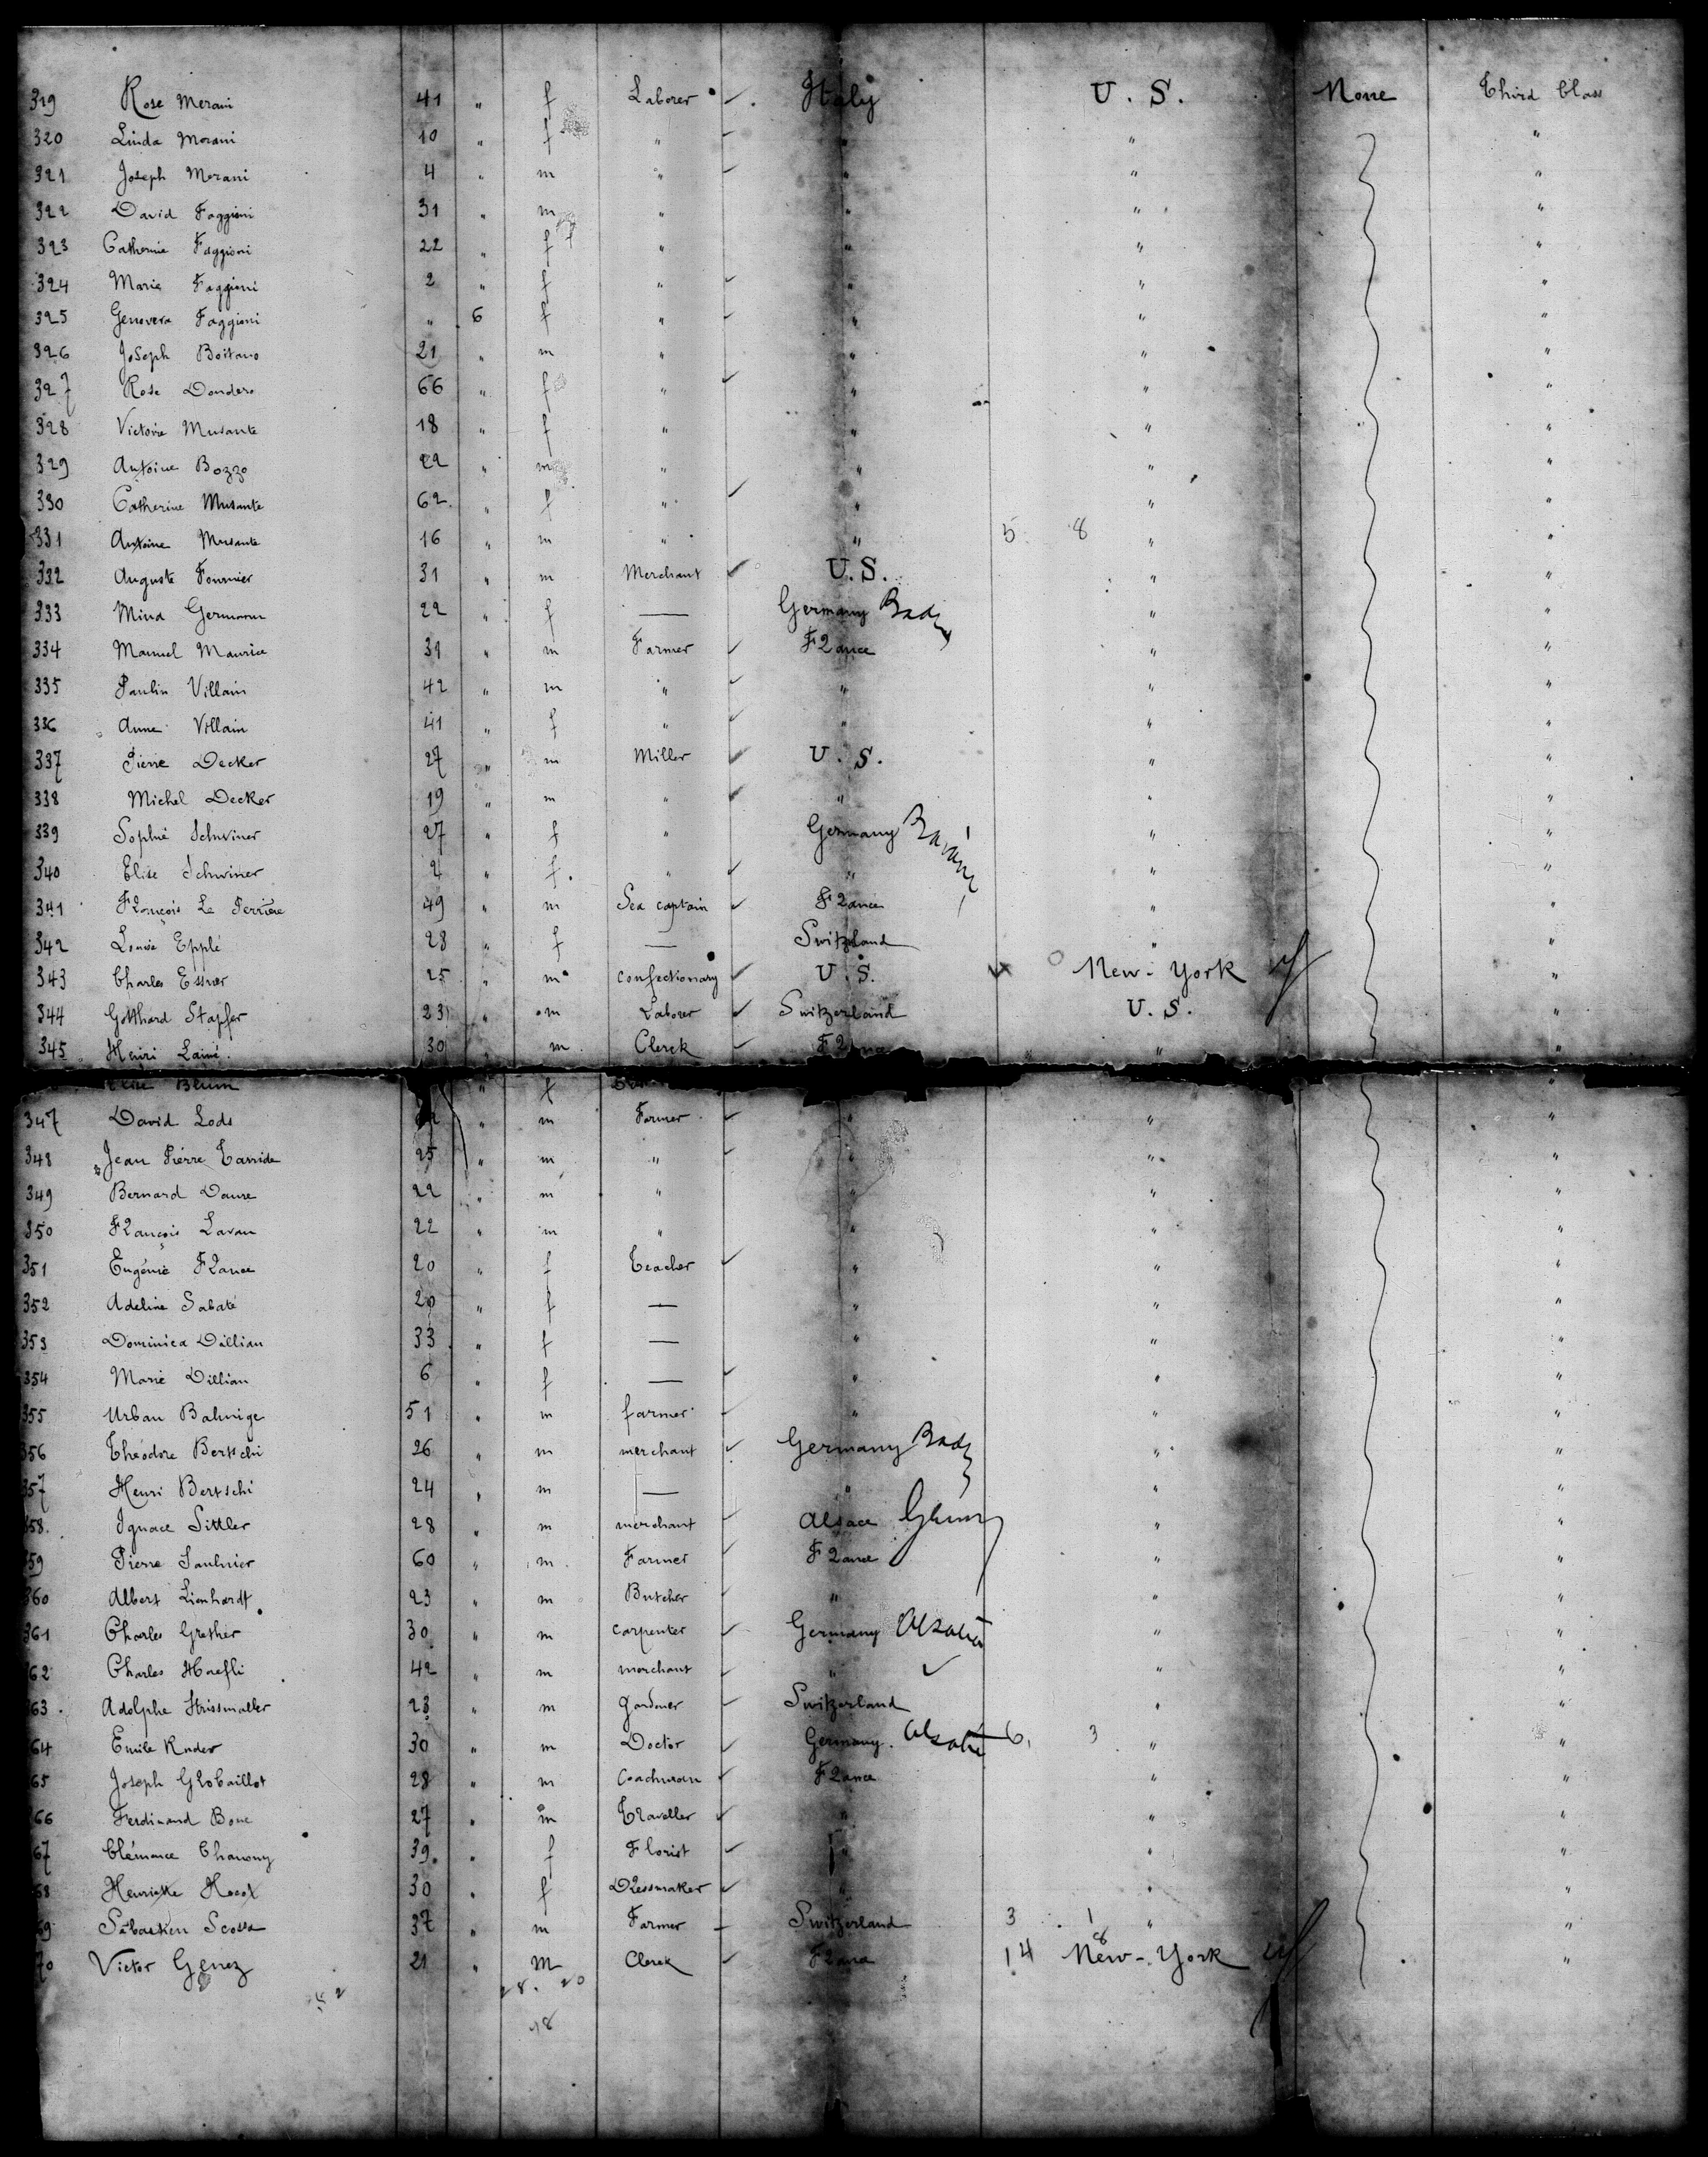 319 Rose Merani 41 " f Laborer Italy U. S. None Third Class
320 Linda Morani 10 " f " " " "
321 Joseph Morani 4 " m " " " "
322 David Faggioni 31 " m " " " "
323 Catherine Faggioni 22 " f " " " "
324 Marie Faggioni 2 " f " " " "
325 Genovera Faggioni " 6 f " " " "
326 Joseph Boitano 21 " m " " " "
327 Rose Dondero 66 " f " " " "
328 Victoire Musante 18 " f " " " "
329 Antoine Bozzo 22 " m " " " "
330 Catherine Musante 62 " f " " " "
331 Antoine Musante 16 " m " " 5 8 " "
332 Auguste Fournier 31 " m Merchant U.S. " "
333 Mina Germann 22 " f — Germany " "
334 Manuel Maurice 31 " m Farmer France " "
335 Paulin Villain 42 " m " " " "
336 Anne Villain 41 " f " " " "
337 Pierre Decker 27 " m Miller U. S. " "
338 Michel Decker 19 " m " " " "
339 Sophie Schwiner 27 " f " Germany " "
340 Elise Schwiner 4 " f. " " " "
341 François Le Perriere 49 " m Sea captain France " "
342 Louise Epplé 28 " f — Switzland " "
343 Charles Essner 25 " m confectionary U. S. New-York "
344 Gotthard Stapfer 23 " m Laborer Switzerland U. S. "
345 Henri Lainé 30 " m Clerck France " "
Blum " f "
347 David Lods " m Farmer " " "
348 Jean Pierre Tarride 25 " m " " " "
349 Bernard Daure 22 " m " " " "
350 François Lavau 22 " m " " " "
351 Eugénie France 20 " f Teacher " " "
352 Adeline Sabaté 20 " f — " " "
353 Dominica Dillian 33 " f — " " "
354 Marie Dillian 6 " f — " " "
355 Urban Bahnige 51 " m farmer " " "
356 Théodore Bertschi 26 " m merchant Germany " "
357 Henri Bertschi 24 " m — " " "
358 Ignace Sittler 28 " m merchant Alsace " "
359 Pierre Saulnier 60 " m Farmer France " "
360 Albert Lienhardt 23 " m Butcher " " "
361 Charles Grether 30 " m carpenter Germany Alsatia " "
362 Charles Haefli 42 " m merchant " " "
363 Adolphe 23 " m gardner Switzerland " "
364 Emile 30 " m Doctor Germany. Alsatia 6, 3 " "
65 Joseph Grobaillot 28 " m Coachman France " "
66 Ferdinand Bone 27 " m Traveller " " "
67 Clémence 39 " f Florist " " "
68 Henriette 30 " f Dressmaker " " "
69 Sébastien Scossa 37 " m Farmer Switzerland 3 1 " "
70 Victor Genez 21 " m Clerck France 14 8 New-York "
28. 20